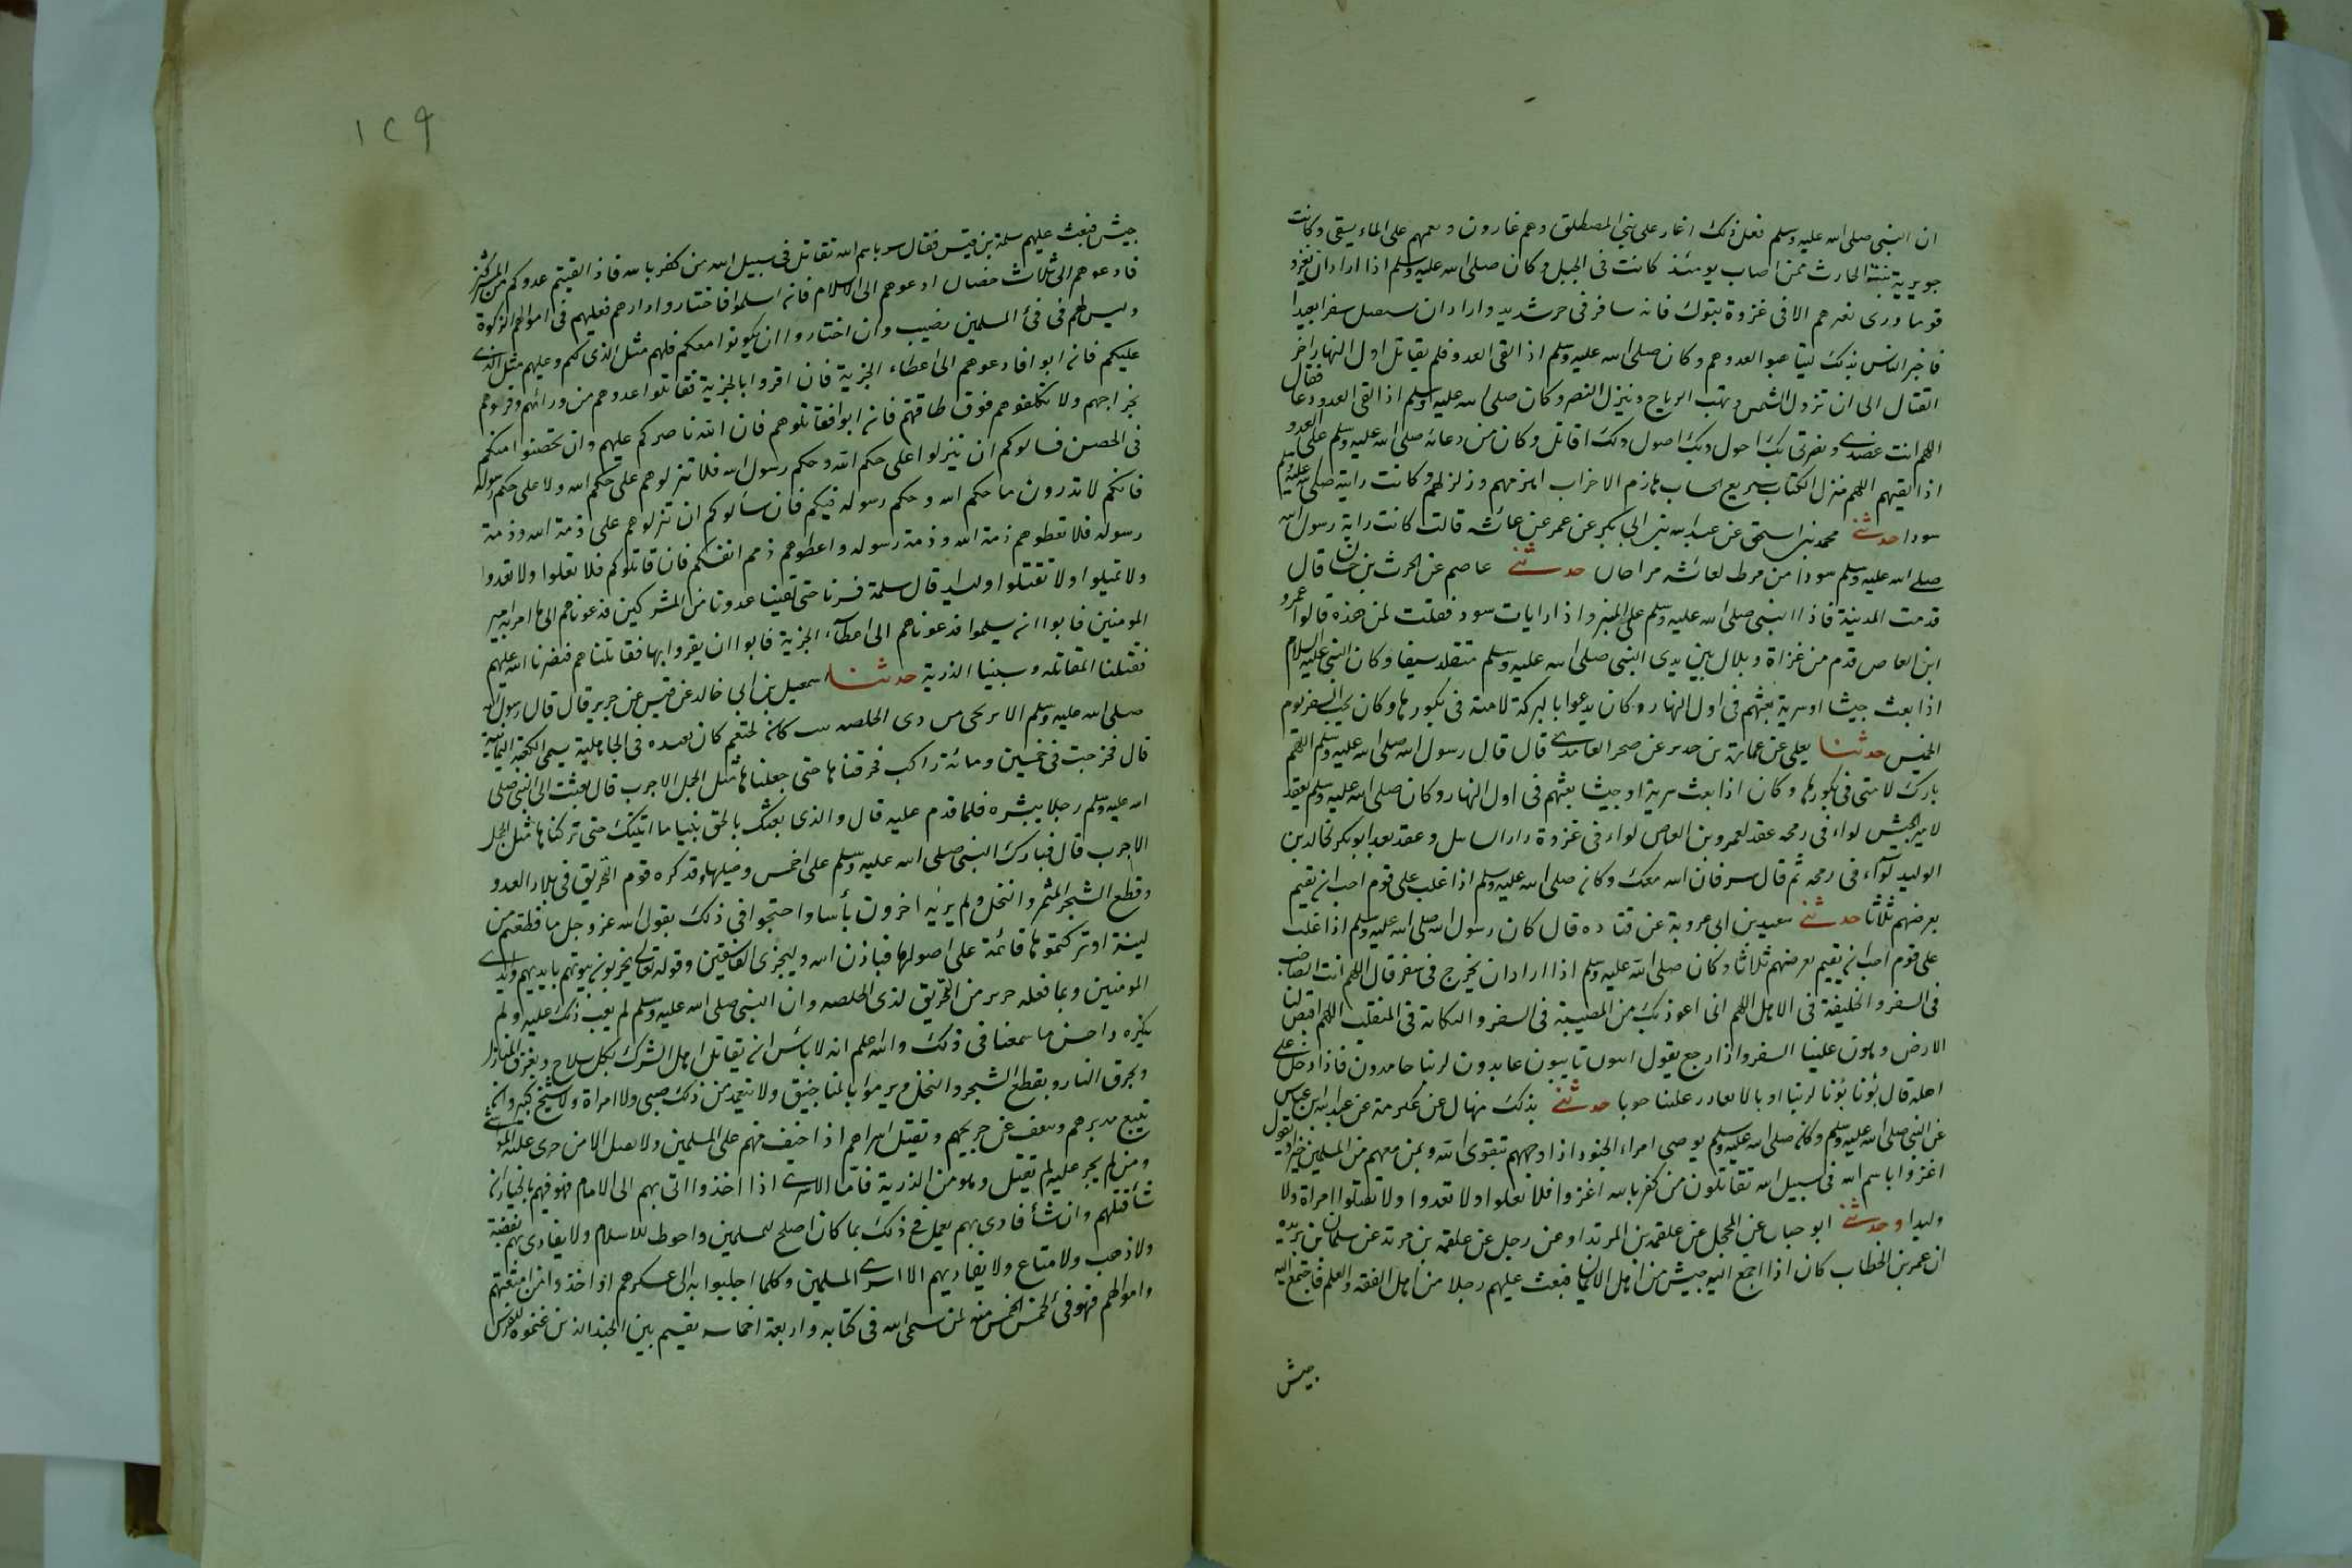 ان النبى صلى الله عليه وسلم فعل ذلك اغار على بنى المصطلق وهم غارون ونعمهم على الماء يسقى وكانت
جويرية بنت الحارث ممن اصاب يومئذ كانت فى الجبل وكان صلى الله عليه وسلم اذا اراد ان يغزو
قوما ورى بغيرهم الا فى غزوة تبوك فانه سافر فى حر شديد واراد ان سفرا بعيدا
فاخبر الناس بذلك ليتاهبوا لعدوهم وكان صلى الله عليه وسلم اذا لقى العدو فلم يقاتل اول النهار اخر
القتال الى ان تزول الشمس وتهب الرياح وينزل النصر وكان صلى الله عليه وسلم اذا لقى العدو دعا فقال
اللهم انت عضدى ونصرتى بك احول وبك اصول وبك اقاتل وكان من دعائه صلى الله عليه وسلم على العدو
اذا لقيهم اللهم منزل الكتاب سريع الحساب هازم الاحزاب اهزمهم وزلزلهم وكانت راية صلى الله عليه وسلم
سودا حدثنى محمد بن اسحق عن عبد الله بن ابى بكر عن عمر عن عائشه قالت كانت راية رسول الله
صلى الله عليه وسلم سودا من مرط لعائشه مراحان حدثنى عاصم عن الحرث بن حسان قال
قدمت المدينة فاذا النبى صلى الله عليه وسلم على المنبر واذا رايات سود فقلت لمن هذه قالوا عمرو
ابن العاص قدم من غزاة وبلال بين يدى النبى صلى الله عليه وسلم متقلد سيفا وكان النبى عليه السلام
اذا بعث جيشا او سرية بعثهم فى اول النهار وكان يدعوا بالبركة لامته فى بكورها وكان يحب السفر يوم
الخميس حدثنا يعلى عن عمارة بن حدير عن صخر الغامدى قال قال رسول الله صلى الله عليه وسلم اللهم
بارك لامتى فى بكورها وكان اذا بعث سرية او جيشا بعثهم فى اول النهار وكان صلى الله عليه وسلم يعقد
لامير الجيش لواء فى رمحه عقد لعمرو بن العاص لواء فى غزوة ذات السلاسل وعقد بعد ابو بكر لخالد بن
الوليد لوآء فى رمحه ثم قال سر فان الله معك وكان صلى الله عليه وسلم اذا غلب على قوم احب ان يقيم
بعرصتهم ثلاثا حدثنى سعيد بن ابى عروبة عن قتاده قال كان رسول الله صلى الله عليه وسلم اذا غلب
على قوم احب ان يقيم بعرصتهم ثلاثا وكان صلى الله عليه وسلم اذا اراد ان يخرج فى سفر قال اللهم انت الصاحب
فى السفر والخليفة فى الاهل اللهم انى اعوذ بك من الضيعة فى السفر والكابة فى المنقلب اللهم اقبض لنا
الارض وهون علينا السفر واذا رجع يقول ائبون تايبون عابدون لربنا حامدون فاذا دخل على
اهله قال توبا توبا لربنا اوبا لا يغادر علينا حوبا حدثنى بذلك منهال عن عكرمة عن عبد الله بن عباس
عن النبى صلى الله عليه وسلم وكان صلى الله عليه وسلم يوصى امراء الجنود اذا وجههم بتقوى الله وبمن معهم من المسلمين خيرا ويقول
اغزوا باسم الله فى سبيل الله تقاتلون من كفر بالله اغزوا فلا تغلوا ولا تغدوا ولا تقتلوا امراة ولا
وليدا وحدثنى ابو حباب عن المحجل عن علقمه بن المرثد او عن رجل عن علقمه بن مرثد عن سلمان بن بريده
ان عمر بن الخطاب كان اذا اجمع اليه جيش من اهل الايمان فبعث عليهم رجلا من اهل الفقه والعلم فاجتمع اليه
جيش
١٢٩
جيش فبعث عليهم سلمة بن قيس فقال سر باسم الله تقاتل فى سبيل الله من كفر بالله فاذا لقيتم عدوكم من المشركين
فادعوهم الى ثلاث خصال ادعوهم الى الاسلام فان اسلموا فاختاروا دارهم فعليهم فى اموالهم الزكوة
وليس لهم فى فئ المسلمين نصيب وان اختاروا ان يكونوا معكم فلهم مثل الذى لكم وعليهم مثل الذى
عليكم فان ابوا فادعوهم الى اعطاء الجزية فان اقروا بالجزية فقاتلوا عدوهم من ورائهم وفرغوهم
لخراجهم ولا تكلفوهم فوق طاقتهم فان ابوا فقاتلوهم فان الله ناصركم عليهم وان تحصنوا منكم
فى الحصن فسالوكم ان ينزلوا على حكم الله وحكم رسول الله فلا تنزلوهم على حكم الله ولا على حكم رسوله
فانكم لا تدرون ما حكم الله وحكم رسوله فيكم فان سالوكم ان تنزلوهم على ذمة الله وذمة
رسوله فلا تعطوهم ذمة الله وذمة رسوله واعطوهم ذمم انفسكم فان قاتلوكم فلا تغلوا ولا تغدوا
ولا تمثلوا ولا تقتلوا وليدا قال سلمة فسرنا حتى لقينا عدونا من المشركين فدعوناهم الى ما امر به امير
المومنين فابوا ان يسلموا فدعوناهم الى اعطآء الجزية فابوا ان يقروا بها فقاتلناهم فنصرنا الله عليهم
فقتلنا المقاتله وسبينا الذرية حدثنا اسمعيل بن ابى خالد عن قيس عن جرير قال قال رسول الله
صلى الله عليه وسلم الا تريحنى من ذى الخلصه بيت كان لخثعم كان تعبده فى الجاهلية يسمى الكعبة اليمانية
قال فخرجت فى خمسين ومائة راكب فحرقناها حتى جعلناها مثل الجمل الاجرب قال فبعثت الى النبى صلى
الله عليه وسلم رجلا يبشره فلما قدم عليه قال والذى بعثك بالحق نبيا ما اتيتك حتى تركناها مثل الجمل
الاجرب قال فبارك النبى صلى الله عليه وسلم على احمس وخيلها وقد كره قوم التحريق فى بلاد العدو
وقطع الشجر المثمر والنخل ولم ير به اخرون بأسا واحتجوا فى ذلك بقول الله عز وجل ما قطعتم من
لينة او تركتموها قائمة على اصولها فباذن الله وليخزى الفاسقين وقوله تعالى يخربون بيوتهم بايديهم وايدى
المومنين وبما فعله جرير من التحريق لذى الخلصه وان النبى صلى الله عليه وسلم لم يعب ذلك عليه ولم
يكره واحسن ما سمعنا فى ذلك والله اعلم انه لا بأس ان يقاتل اهل الشرك بكل سلاح ويغرق المنازل
ويحرق النار ويقطع الشجر والنخل ويرموا بالمناجنيق ولا يتعمد من ذلك صبى ولا امراة ولا شيخ كبير وان
يتبع مدبرهم ويعف عن جريحهم ويقتل اسراهم اذا خيف منهم على المسلمين ولا يقتل الا من جرى عليه الموسى
ومن لم يجر عليه لم يقتل وهو من الذرية فاما الاسرى اذا اخذوا اتى بهم الى الامام فهو فيهم بالخيار ان
شأ قتلهم وان شأ فادى بهم يعمل فى ذلك بما كان اصلح للمسلمين واحوط للاسلام ولا يفادى بهم بفضة
ولا ذهب ولا متاع ولا يفاديهم الا اسرى المسلمين وكلما اجلبوا به الى عسكرهم او اخذوا من امتعتهم
واموالهم فهو فئ لخمس الخمس منه لمن سمى الله فى كتابه واربعة اخماسه يقسم بين الجند الذين غنموه للفرس